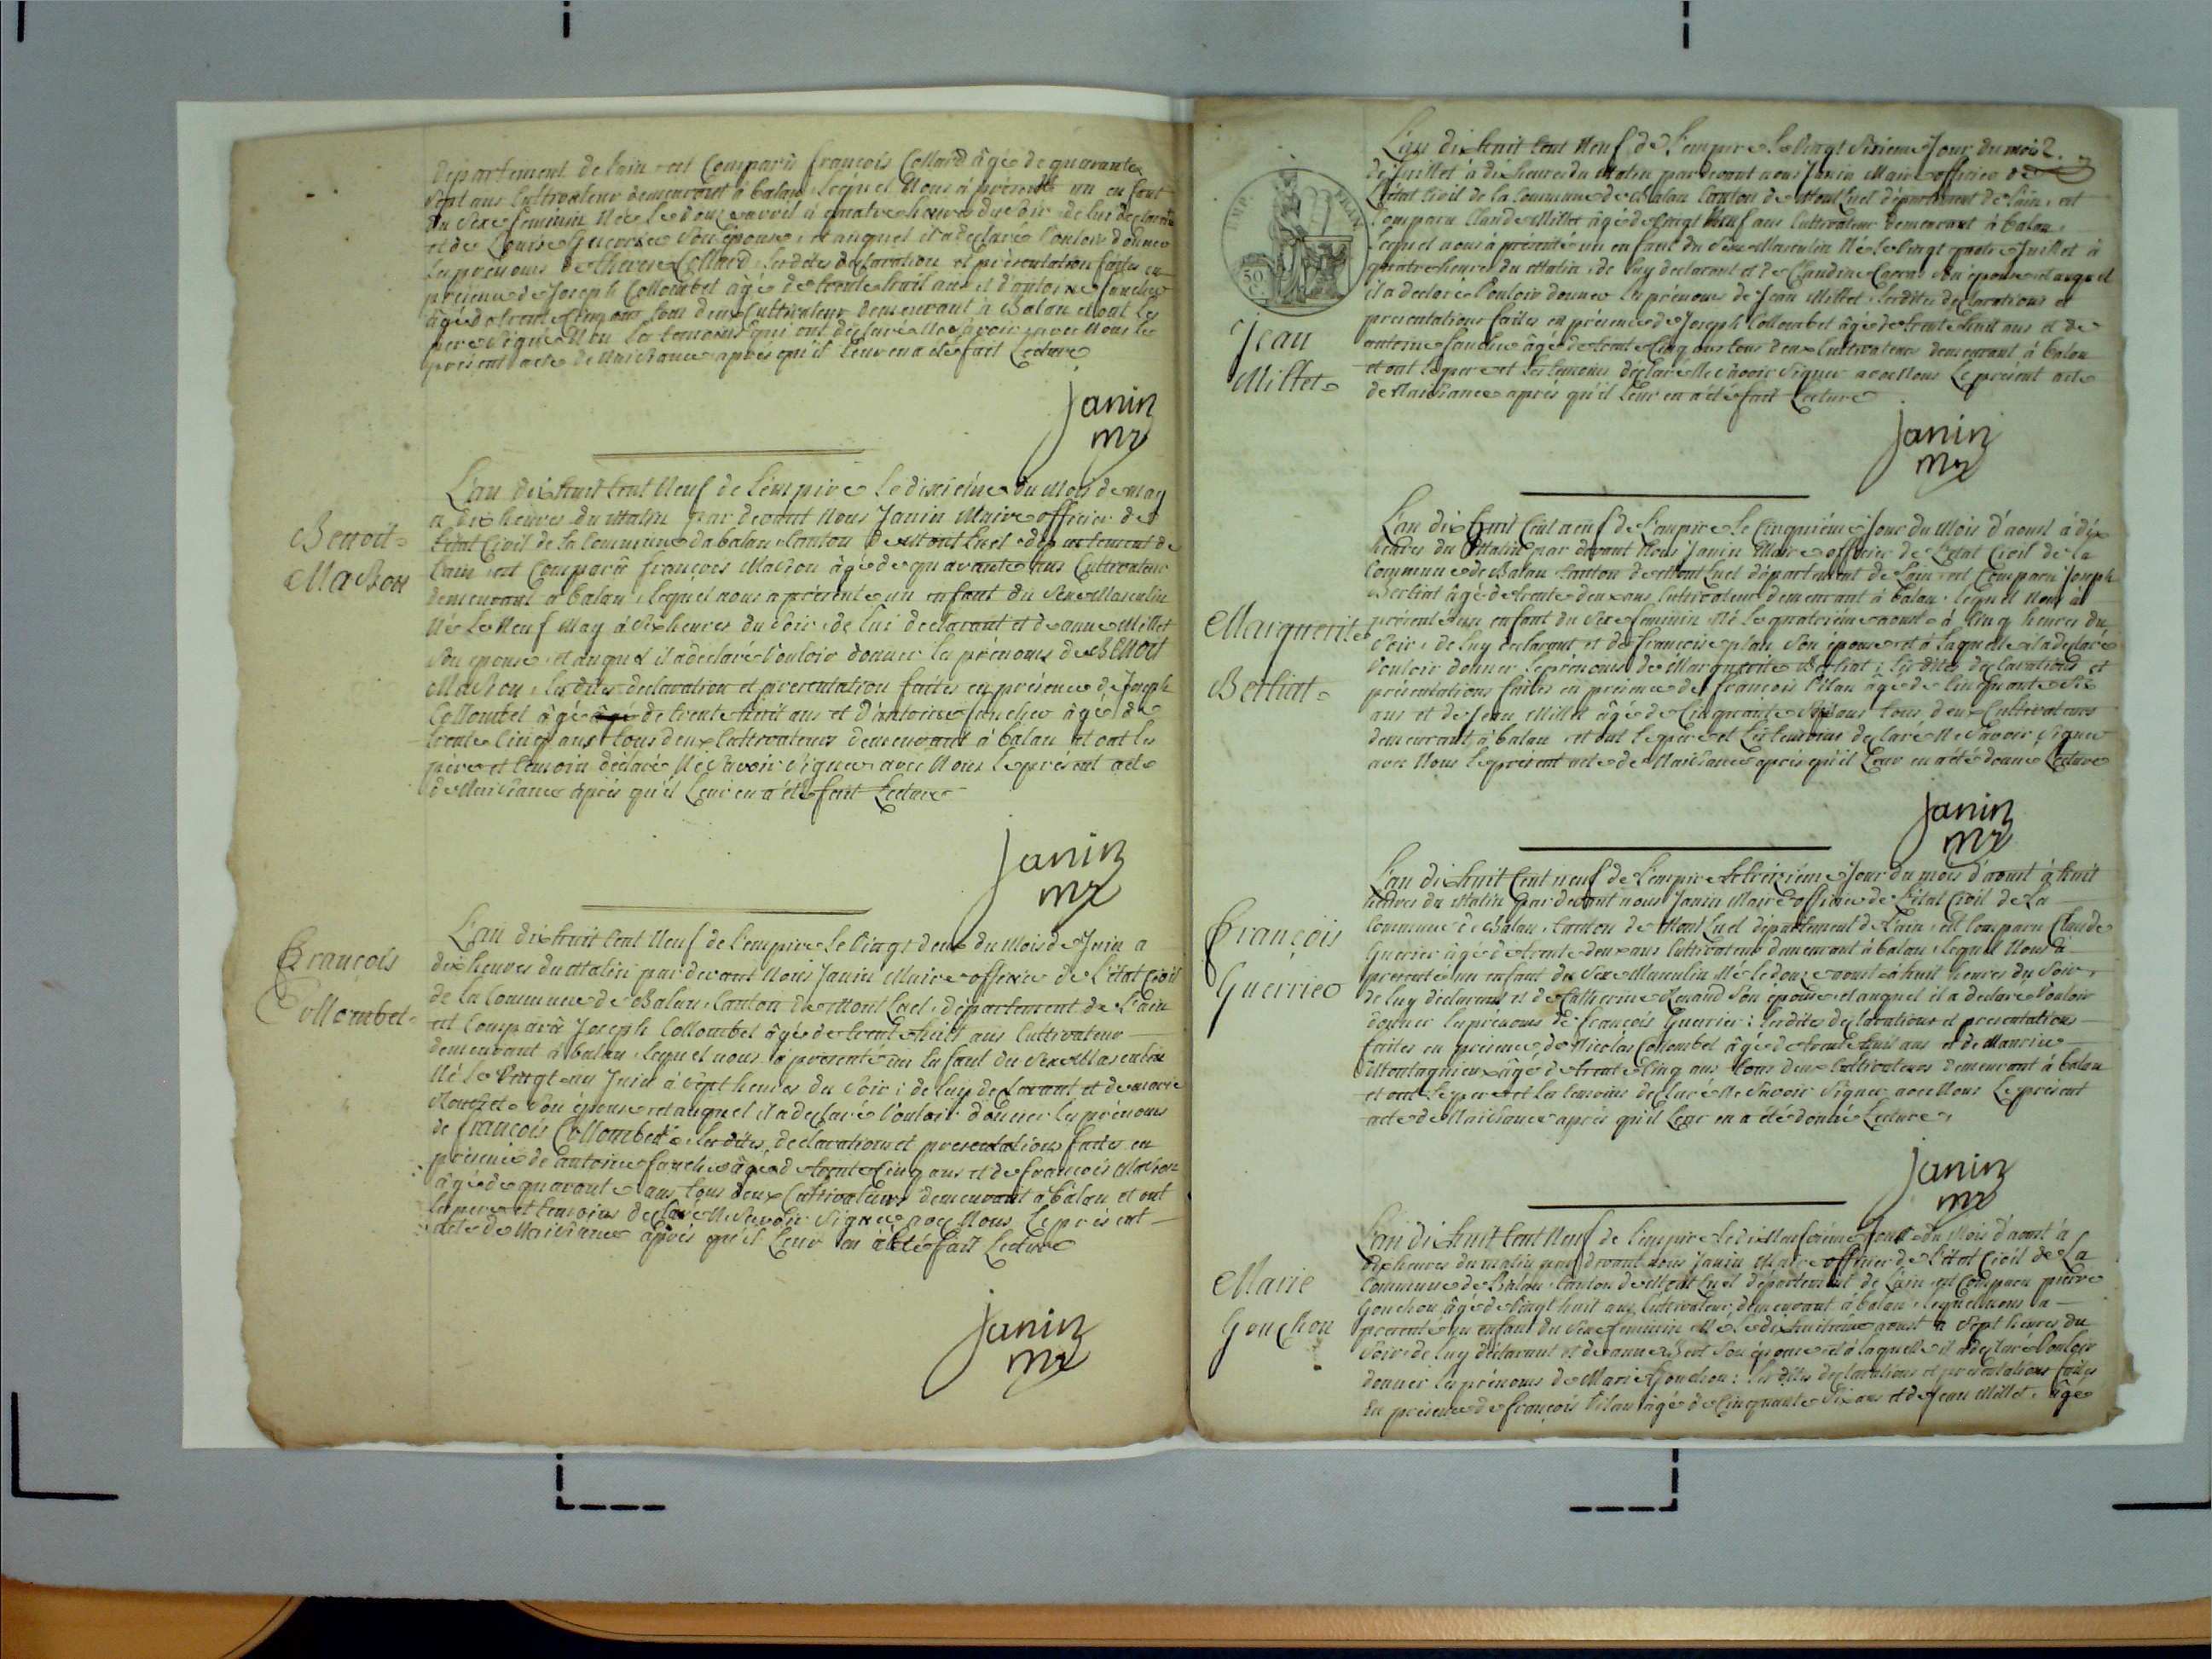 Département de Lain est Comparû françois Collard âgé de quarante
sept ans Cultivateur demeurant à balan lequel Nous à présenté un enfant
du sexe feminin Née le douze avril à quatre heures du soir de lui declarant
et de Louise Guerrie son épouse, et auquel il a declaré Vouloir donner
les prénoms de therese Collard, lesdites declaration et présentation faites en
présence de Joseph Collombet âgé de trente huit ans et d'antoine fancher
âgé de trente cinq ans tous deux Cultivateur demeurant à Balan et ont les
pere signé Non les temoins qui ont declaré Ne savoir avec Nous le
présent acte de Naissance après qu'il leur en a été fait Lecture
Janin
mr
Benoit
Masson
L'an dix huit Cent Neuf de L'empire Le dixieme du Mois de May
a dix heures du Matin par devant Nous Janin Maire officier de
L'etat Civil de la Commune de balan Canton de Mont Luel département de
Lain est Comparû françois Masson âgé de quarante ans Cultivateur
demeurant à balan, lequel nous a présenté un enfant du Sexe Masculin
Né Le Neuf May à six heures du soir, de lui declarant et de anne Millet
son epouse, et auquel il a declaré Vouloir donner les prénoms de BENOIT
Masson, lesdites declaration et presentation faites en présence de Joseph
Collombet âgé âgé de trente huit ans et D'antoine fancher âgé de
trente Cinq ans tous deux Cultivateurs demeurant à balan et ont les
père et temoin déclaré Ne savoir signer avec Nous le présent acte
de Naissance après qu'il Leur en a été fait Lecture
Janin
mr
François
Collombet
L'an dix huit Cent Neuf de L'empire Le Vingt deux du Mois de Juin a
dix heures du Matin par devant Nous Janin Maire officier de L'état Civil
de la Commune de Balan, Canton de Mont Luel, département de Lain
est Comparû Joseph Collombet âgé de trente huit ans Cultivateur
demeurant à balan, lequel nous à présenté un Enfant du Sexe Masculin
Né Le Vingt un Juin à sept heures du Soir ; de luy declarant et de marie
son épouse et auquel il a declaré Vouloir donner les prénoms
de françois Collombet : lesdites declarations et presentations faites en
présence de antoine fancher âgé de trente Cinq ans et de françois Masson
âgé de quarante ans tous deux Cultivateurs demeurant à balan et ont
les pere et temoins declaré Ne savoir signer avec Nous Le présent
acte de Naissance après qu'il Leur en a été fait Lecture
Janin
mr
L'an dix huit Cent Neuf de L'empire Le Vingt sixieme Jour du mois
de Juillet à dix heures du Matin par devant nous Janin Maire officier de
L'état Civil de la Commune de Balan Canton de Mont Luel département de Lain, est
Comparu Claude Millet âgé de Vingt Neuf ans Cultivateur demeurant à balan,
lequel nous à présenté un enfant du Sexe Masculin Né le Vingt Juillet à
quatre heures du Matin, de luy declarant et de Claudine son epouse et auquel
il a declaré Vouloir donner les prénoms de Jean Millet, lesdites declarations et
presentations faites en présence de Joseph Collombet âgé de trente huit ans et de
antoine fancher âgé de trente Cinq ans tous deux Cultivateurs demeurant à balan
et ont le pere et les temoins declaré Ne savoir signer avec Nous Le présent acte
de Naissance après qu'il Leur en a été fait Lecture
IMP. FRAN.
50 C
Jean
Millet
Janin
mr
L'an dix huit Cent neuf de L'empire Le Cinquième Jour du Mois d'aoust à dix
heures du Matin par devant Nous Janin Maire officier de L'etat Civil de la
Commune de Balan Canton de Mont Luel département de Lain est Comparu Joseph
Berliat âgé de trente deux ans Cultivateur demeurant à balan, lequel Nous à
présenté un enfant du Sexe feminin Né le quatrième aoust à Cinq heures du
Soir, de luy declarant et de françoise pilan Son épouse et à laquelle il a declaré
Vouloir donner le prénoms de Marguerite Berliat ; lesdites declarations et
présentations faites en présence de françois Pilan âgé de Cinquante Six
ans et de Jean Millet âgé de Cinquante ans tous deux Cultivateurs
demeurant à balan et ont le père et Les temoins declaré Ne savoir signer
avec Nous Le présent acte de Naissance après qu'il Leur en a été donné Lecture
Marguerite
Berliat
Janin
mr
L'an dix huit Cent neuf de L'empire Le treizième Jour du mois d'aoust à huit
heures du Matin par devant nous Janin Maire officier de L'état Civil de La
Commune de Balan, Canton de Mont Luel département de Lain, est Comparu Claude
Guerrier âgé de trente deux ans Cultivateur demeurant à balan, lequel Nous à
présenté un enfant du Sexe Masculin Né le douze aoust à huit heures du Soir,
de luy déclarant et de Catherine Renaud Son épouse et auquel il a declaré Vouloir
donner les prénoms de françois Guerrier : lesdites declarations et presentations
faites en présence de Nicolas Collombet âgé de trente huit ans et de Maurice
Montagnieux âgé de trente Cinq ans tous deux Cultivateurs demeurant à balan
et ont le pere et Les temoins declaré Ne savoir signer avec Nous Le présent
acte de Naissance après qu'il Leur en a été donné Lecture,
François
Guerrier
Janin
mr
L'an dix huit Cent Neuf de L'empire Le dix Neuvième Jour du Mois d'aoust à
dix heures du matin par devant nous Janin Maire officier de L'état Civil de La
Commune de Balan, Canton de Mont Luel département de Lain, est Comparu pierre
Gonchon âgé de Vingt huit ans, Cultivateur, demeurant à balan, lequel nous a
présenté un enfant du Sexe feminin Né Le dix huitième aoust à Sept heures du
Soir de luy déclarant et de anne Son épouse et à laquelle il a declaré Vouloir
donner les prénoms de Marie Gonchon : lesdites declarations et présentations faites
en présence de françois Pilan âgé de Cinquante Six ans et de Jean Millet, âgé
Marie
Gonchon